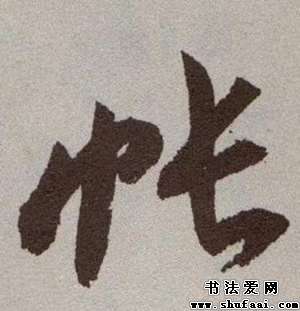 帐
书法爱网
www.shufaai.com